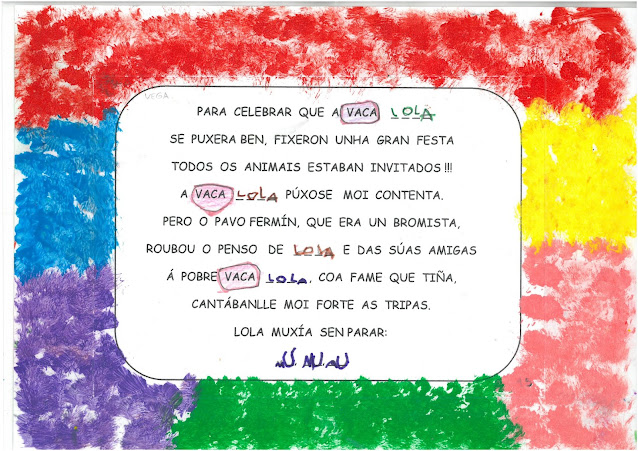 VEGA
PARA CELEBRAR QUE A VACA LOLA
SE PUXERA BEN, FIXERON UNHA GRAN FESTA
TODOS OS ANIMAIS ESTABAN INVITADOS!!!
A VACA LOLA PÚXOSE MOI CONTENTA.
PERO O PAVO FERMÍN, QUE ERA UN BROMISTA,
ROUBOU O PENSO DE LOLA E DAS SÚAS AMIGAS
Á POBRE VACA LOLA, COA FAME QUE TIÑA,
CANTÁBANLLE MOI FORTE AS TRIPAS.
LOLA MUXÍA SEN PARAR: